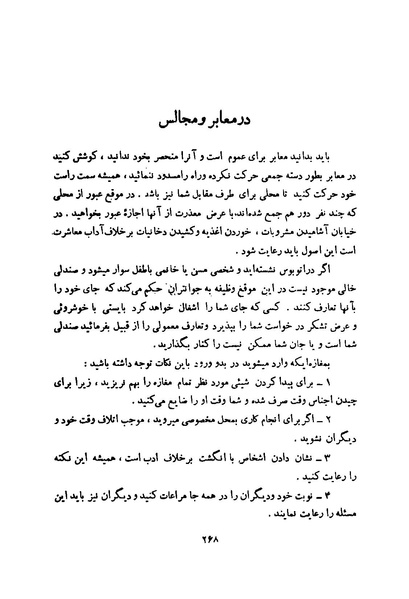 در معابر و مجالس
باید بدانید معابر برای عموم است و آنرا منحصر بخود ندانید ، کوشش کنید
در معابر بطور دسته جمعی حرکت نکرده وراه رامسدود ننمائید ، همیشه سمت راست
خود حرکت کنید تا محلی برای طرف مقابل شما نیز باشد . در موقع عبور از محلی
که چند نفر دور هم جمع شده‌اند،با عرض معذرت از آنها اجازهٔ عبور بخواهید . در
خیابان آشامیدن مشروبات ، خوردن اغذیه وکشیدن دخانیات برخلاف آداب معاشرت
است این اصول باید رعایت شود .
اگر دراتوبوس نشسته‌اید و شخصی مسن یا خانمی باطفل سوار میشود و صندلی
خالی موجود نیست در این موقع وظیفه به جوانتران حکم می‌کند که جای خود را
بآنها تعارف کنند . کسی که جای شما را اشغال خواهد کرد بایستی با خوشروئی
و عرض تشکر در خواست شما را بپذیرد وتعارف معمولی را از قبیل بفرمائید صندلی
شما است و یا جان شما ممکن نیست را کنار بگذارید .
بمغازه‌ایکه وارد میشوید در بدو ورود باین نکات توجه داشته باشید :
۱ ـ برای پیدا کردن شیئی مورد نظر تمام مغازه را بهم نریزید ، زیرا برای
چیدن اجناس وقت صرف شده و شما وقت او را ضایع می‌کنید .
۲ ـ اگر برای انجام کاری بمحل مخصوصی میروید ، موجب اتلاف وقت خود و
دیگران نشوید .
۳ ـ نشان دادن اشخاص با انگشت برخلاف ادب است ، همیشه این نکته
را رعایت کنید .
۴ ـ نوبت خود ودیگران را در همه جا مراعات کنید و دیگران نیز باید این
مسئله را رعایت نمایند .
۲۶۸